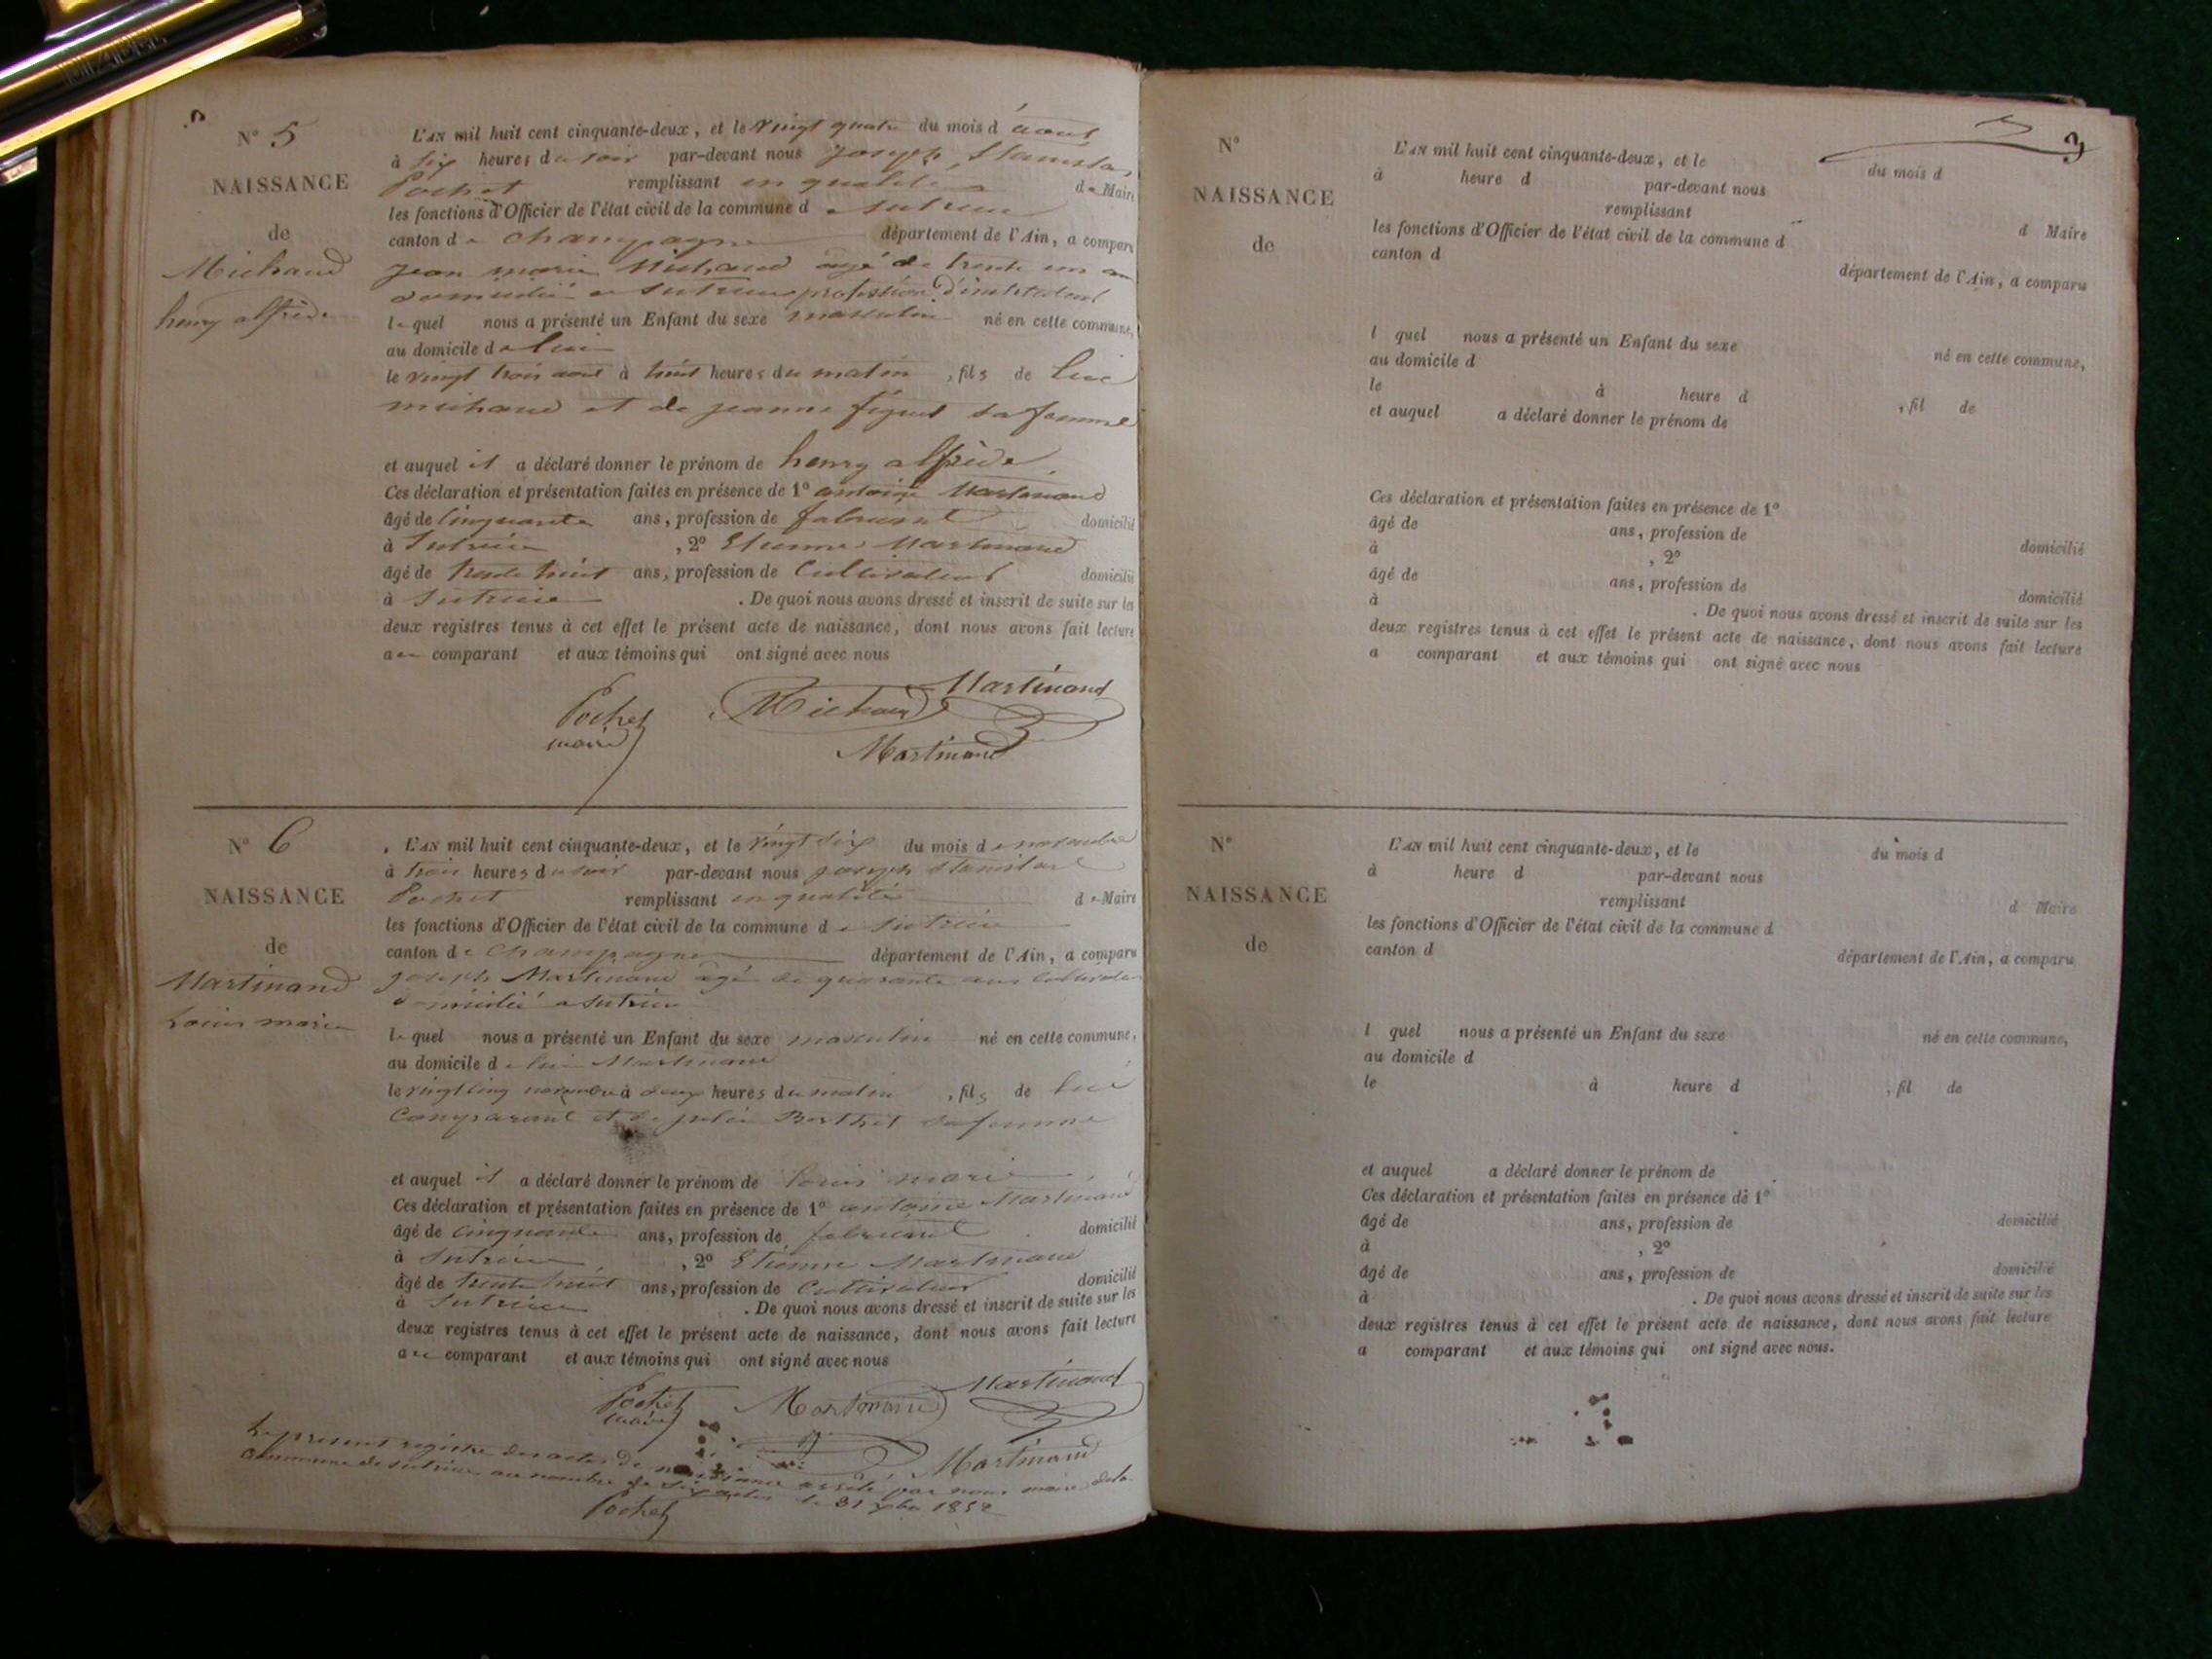 N° 5
NAISSANCE
de
Michaud
henry alfrède
L'AN mil huit cent cinquante-deux, et le vingt quatre du mois d'aout
à six heures du soir par-devant nous joseph Stanislas
Pochet remplissant en qualité de Maire
les fonctions d'Officier de l'état civil de la commune de Sutrieu
canton de champagne département de l'Ain, a comparu
jean marie Michaud agé de trente un an
domicilié a Sutrieu profession d'instituteur
lequel nous a présenté un Enfant du sexe masculin né en cette commune,
au domicile de lui
le vingt trois aout à huit heures du matin, fils de lui
michaud et de jeanne figuet sa femme
et auquel il a déclaré donner le prénom de henry alfrède
Ces déclaration et présentation faites en présence de 1° antoine Martinand
âgé de Cinquante ans, profession de fabricant domicilié
à Sutrieu, 2° Etienne Martinand
âgé de trente huit ans, profession de Cultivateur domicilié
à Sutrieu. De quoi nous avons dressé et inscrit de suite sur les
deux registres tenus à cet effet le présent acte de naissance, dont nous avons fait lecture
au comparant et aux témoins qui ont signé avec nous
Martinand
Pochet Michaud
maire Martinand
N° 6
NAISSANCE
de
Martinand
Louis marie
L'AN mil huit cent cinquante-deux, et le vingt six du mois de novembre
à trois heures du soir par-devant nous joseph Stanislas
Pochet remplissant en qualité de Maire
les fonctions d'Officier de l'état civil de la commune de Sutrieu
canton de Champagne département de l'Ain, a comparu
joseph Martinand agé de quarante ans cultivateur
domicilié a Sutrieu
lequel nous a présenté un Enfant du sexe masculin né en cette commune,
au domicile de lui Martinand
le vingt cinq novembre à deux heures du matin, fils de lui
Comparant et de julie Berthet sa femme
et auquel il a déclaré donner le prénom de louis marie
Ces déclaration et présentation faites en présence de 1° antoine Martinand
âgé de cinquante ans, profession de fabricant domicilié
à Sutrieu, 2° Etienne Martinand
âgé de trente huit ans, profession de Cultivateur domicilié
à Sutrieu. De quoi nous avons dressé et inscrit de suite sur les
deux registres tenus à cet effet le présent acte de naissance, dont nous avons fait lecture
au comparant et aux témoins qui ont signé avec nous
Pochet Martinand Martinand
maire
Martinand
Le present registre des actes de naissance arrêté par nous maire de la
Commune de Sutrieu au nombre de six actes le 31 xbre 1852
Pochet
3
N°
NAISSANCE
de
L'AN mil huit cent cinquante-deux, et le du mois d
à heure d par-devant nous
remplissant d Maire
les fonctions d'Officier de l'état civil de la commune d
canton d département de l'Ain, a comparu
l quel nous a présenté un Enfant du sexe né en cette commune,
au domicile d
le à heure d , fil de
et auquel a déclaré donner le prénom de
Ces déclaration et présentation faites en présence de 1°
âgé de ans, profession de domicilié
à , 2°
âgé de ans, profession de domicilié
à . De quoi nous avons dressé et inscrit de suite sur les
deux registres tenus à cet effet le présent acte de naissance, dont nous avons fait lecture
a comparant et aux témoins qui ont signé avec nous
N°
NAISSANCE
de
L'AN mil huit cent cinquante-deux, et le du mois d
à heure d par-devant nous
remplissant d Maire
les fonctions d'Officier de l'état civil de la commune d
canton d département de l'Ain, a comparu
l quel nous a présenté un Enfant du sexe né en cette commune,
au domicile d
le à heure d , fil de
et auquel a déclaré donner le prénom de
Ces déclaration et présentation faites en présence de 1°
âgé de ans, profession de domicilié
à , 2°
âgé de ans, profession de domicilié
à . De quoi nous avons dressé et inscrit de suite sur les
deux registres tenus à cet effet le présent acte de naissance, dont nous avons fait lecture
a comparant et aux témoins qui ont signé avec nous.